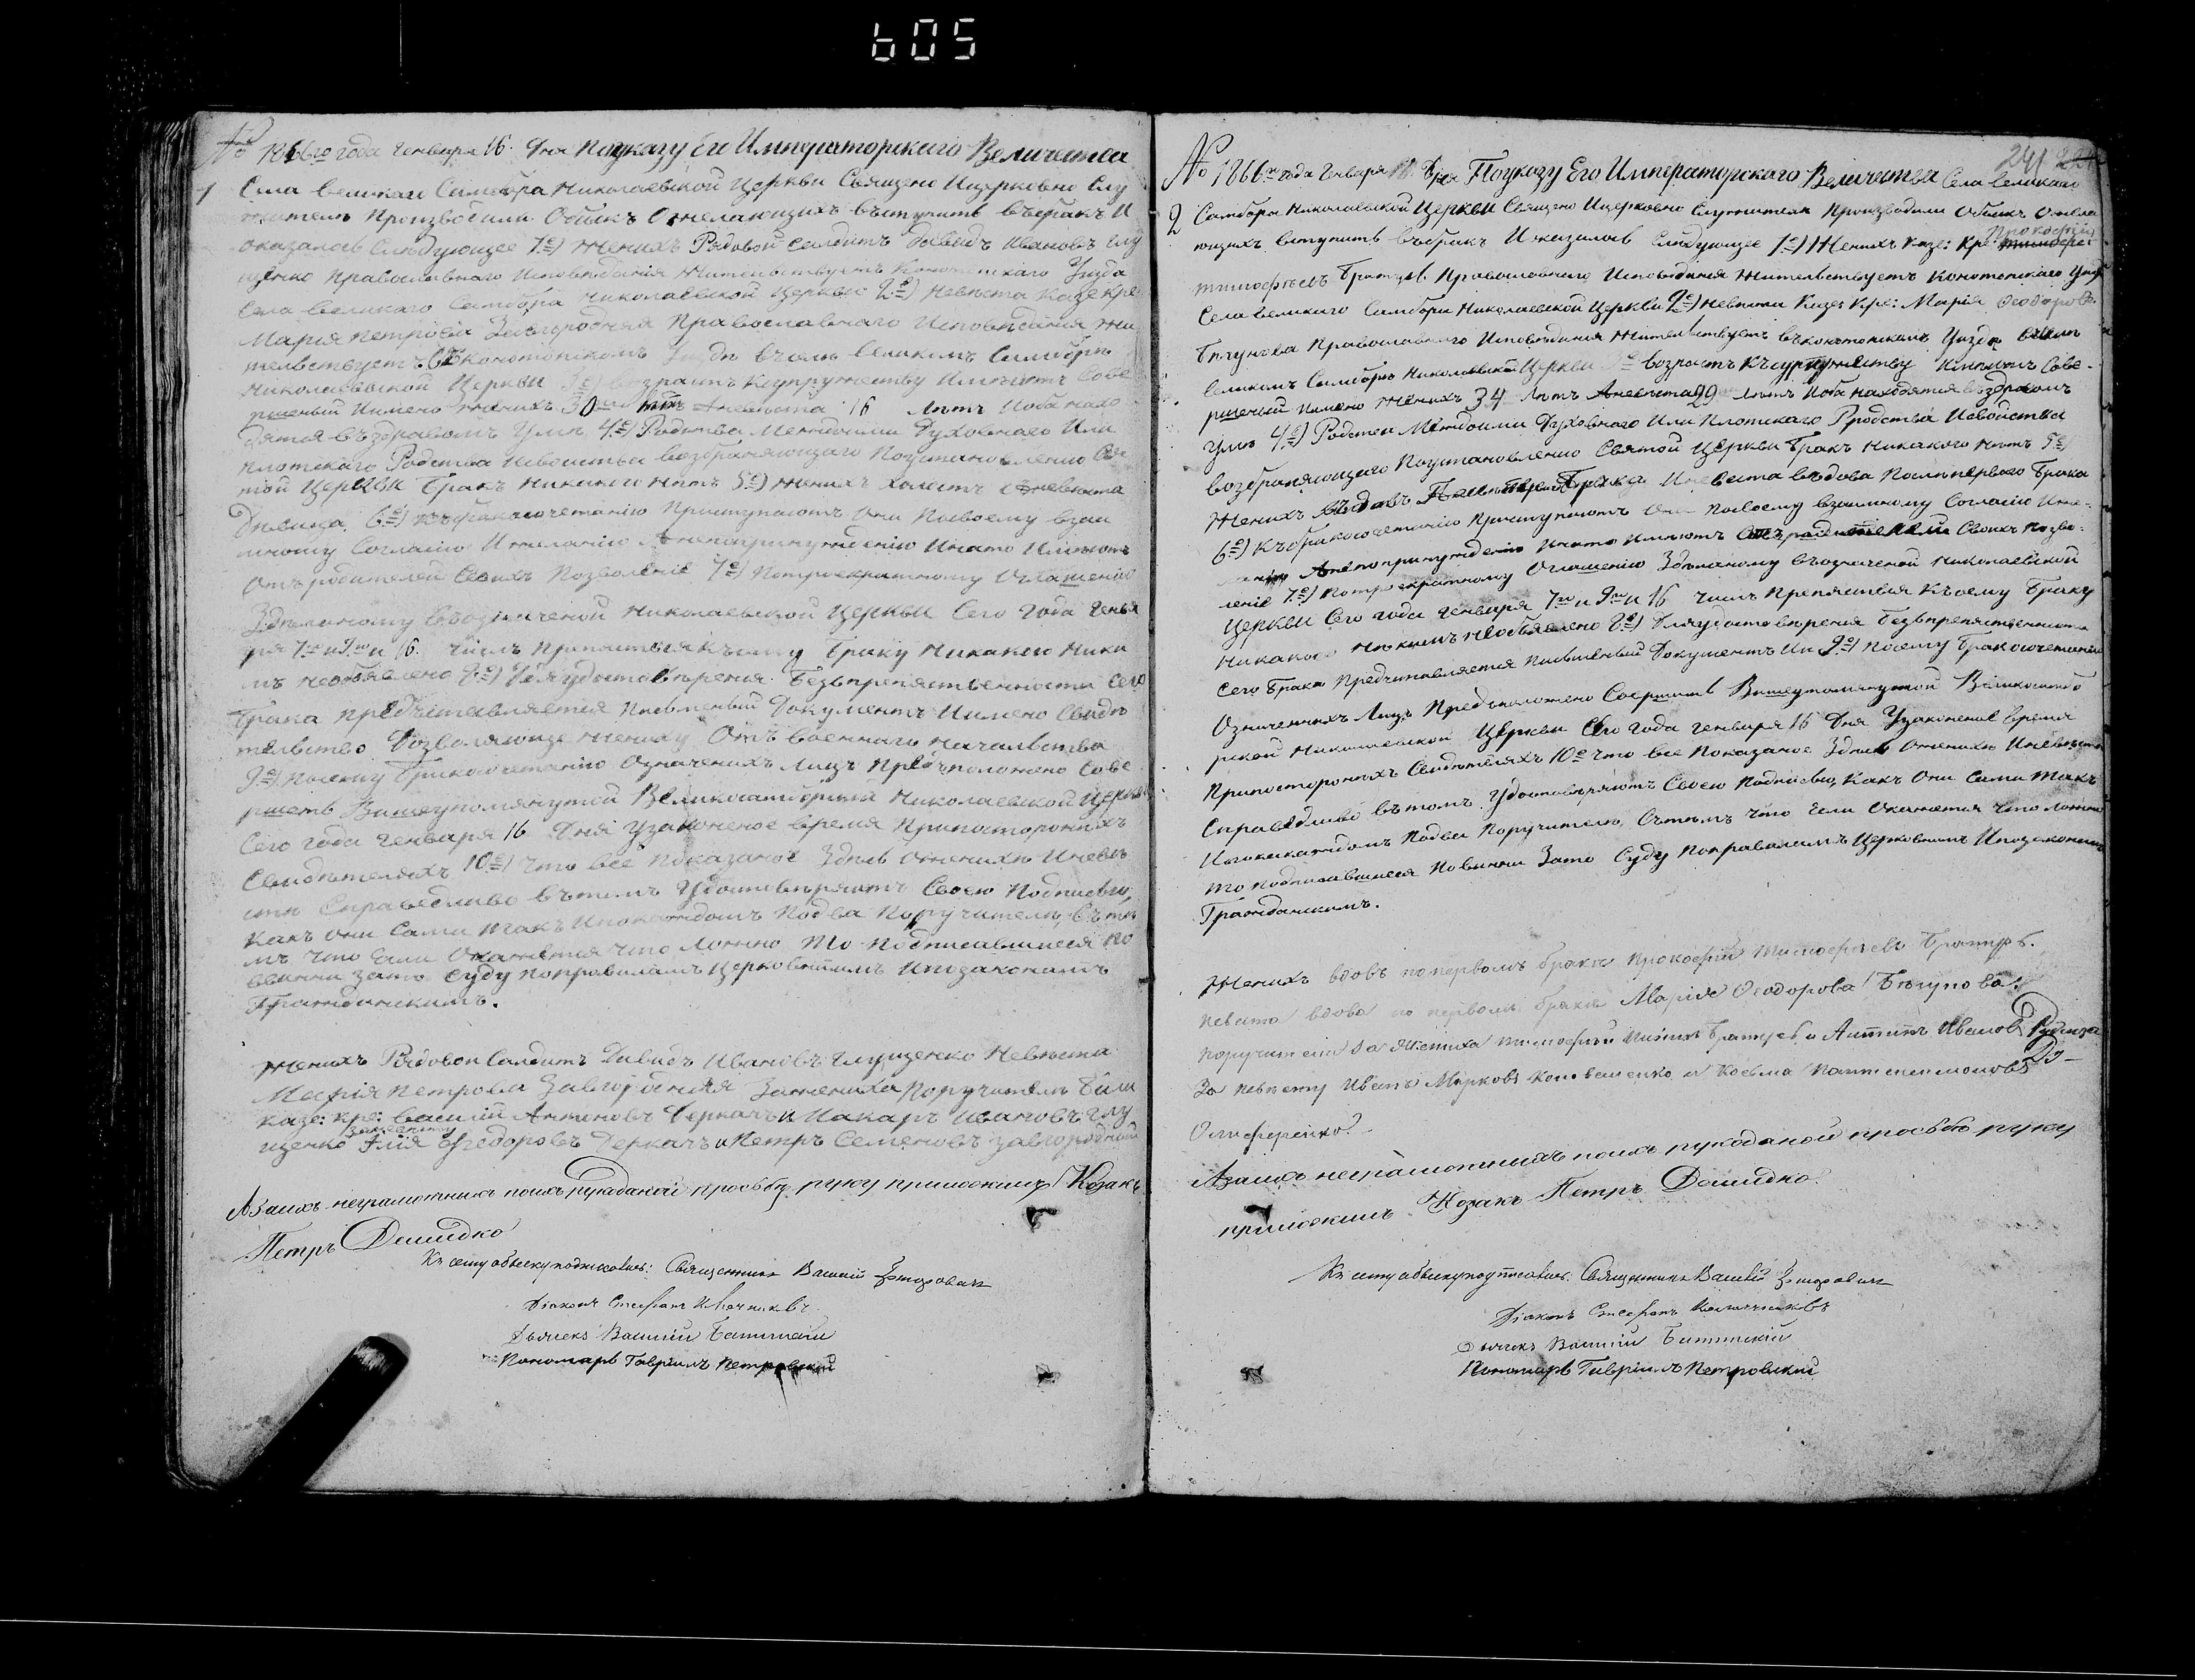 605
№ 1866го года Генваря 16. Дня Поуказу Его Императорскаго Величества
1 Села Великаго Самбора Николаевской Церкви Священо Ицерковно Слу
жители Производили Обыскъ Ожелающихъ вступить въбракъ И
оказалось Следующее 1е) Женихъ Рядовой Салдатъ Давидъ Ивановъ Глу
щенко Православнаго Исповѣданія Жительствуетъ Конотопскаго Уезда
Села Великаго Самбора Николаевской Церкви 2е) Невѣста Казе: Кре
Марія Петрова Завгородняя Православнаго Исповѣданія Жи
тельствуетъ Въ Конотопскомъ Уездѣ Вселѣ Великомъ Самборѣ
Николаевской Церкви 3е) Возрастъ Ксупружеству Имѣютъ Сове
ршеный Имено Женихъ 30 лѣтъ Аневѣста 16 Лѣтъ Иоба нахо
дятся въздравомъ Умѣ 4е) Родства Междоими Духовнаго Или
плотскаго Родства Исвойства возбраняющаго Поустановленію Свя
той Церкви Бракъ Никакого Нѣтъ 5е) Женихъ Холостъ Аневѣста
Дѣвица 6е) Къбракосочетанію Приступаютъ Они Посвоему взаи
мному Согласію Ижеланію Анепопринужденію Инато Имѣютъ
Отъ родителей Своихъ Позволеніе 7е) Потроекратному Оглашенію
Здѣланому Въозначеной Николаевской Церкви Сего Года Генва
ря 7го и 9го и 16. Числъ Препятствія Късему Браку Никакого Ники
мъ Необявлено 8е) Дляудостовѣренія Безвпрепятственности Сего
Брака Предъставляется Писмѣный Документъ Имено Свидѣ
тельство Дозволяюще Жениху Отъ Военнаго Начальства
9е) Посему Бракосочетанію Означенихъ Лицъ Предположено Сове
ршеть Вышеупомянутой Великосамборской Николаевской Церкви
Сего года Генваря 16 Дня Узаконеное Время Припосторонихъ
Свидѣтеляхъ 10е) Что все показаное Здѣсь Оженихѣ Иневѣ
стѣ Справедливо вътомъ Удостовѣряютъ Своею Подписью,
Какъ они Сами такъ Ипокаждомъ Подва Поручителя, Сътѣ
мъ Что Если Окажется что Ложно То Подписавшиеся по
винни зато Суду поправиламъ Церковнимъ Ипозаконамъ
Гражданскимъ.
Женихъ Рядовой Салдатъ Давидъ Ивановъ Глущенко Невѣста
Марія Петрова Завгородняя Зажениха Поручители Били
казе: кре: Василій Антоновъ Деркачъ и Макаръ Ивановъ Глу
щенко Заневѣсту Илія Федоровъ Деркачъ и Петръ Семеновъ Завгородній
Азаихъ неграмотнихъ поихъ рукоданой прозьбѣ руку приложилъ Козакъ
Петръ Демидко
Къ сему обыску подписались: Священникъ Василій
Діаконъ Стефанъ
Дьячекъ Василій
Пономарь Гавріилъ Петровскій
241
№ 1866го года Генваря 16. Дня Поуказу Его Императорскаго Величества Села Великаго
2 Самбора Николаевской Церкви Священо Ицерковно Служители Производили Обыскъ Ожела
ющихъ вступить Въбракъ Иоказалось Следующее 1е) Женихъ Казе: Кре: Прокофій
Тимофѣевъ Православнаго Исповѣданія Жительствуетъ Конотопскаго Уезда
Села Великаго Самбора Николаевской Церкви 2е) Невѣста Казе: Кре: Марія Феодорова
Бѣгунова Православнаго Исповѣданія Жительствуетъ Въконотопскомъ Уездѣ Вселѣ
Великомъ Самборѣ Николаевской Церкви 3е Возрастъ Късупружеству Имѣютъ Сове-
ршеный Имено Женихъ 34 Лѣтъ Аневѣста 29 Лѣтъ Иоба Находятся Въздравомъ
Умѣ 4е) Родства Междоими Духовнаго Или Плотскаго Родства Исвойства
возбраняющаго Поустановленію Святой Церкви Бракъ Никакого Нѣтъ 5е)
Женихъ Вдовъ Брака Иневѣста вдова Послѣпервого Брака
6е) Къбракосочетанію Приступаютъ Они Посвоему взаимному Согласію Иже-
ланію Анепопринужденію Инато Имѣютъ Отъ родителей Своихъ Позво-
леніе 7е) Потроекратному Оглашенію Здѣланому Въозначеной Николаевской
Церкви Сего года Генваря 7го и 9го и 16 Числъ Препятствія Късему Браку
Никакого Никимъ Необявлено 8е) Дляудостовѣренія Безвпрепятственности
Сего Брака Предъставляется Письменый Документъ 9е) Посему Бракосочетанію
Означенихъ Лицъ Предположено Совершить Вышеупомянутой Великосамбо
рской Николаевской Церкви Сего года Генваря 16 Дня Узаконеное Время
Припосторонихъ Свидѣтеляхъ 10е Что все Показаное Здѣсь Оженихѣ Иневѣстѣ
Справедливо вътомъ Удостовѣряютъ Своею Подписью, Какъ Они Сами такъ
Ипокаждомъ Подва Поручителя, Сътѣмъ Что Если Окажется Что Ложно
то подписавшиеся Повинни Зато Суду поправиламъ Церковнимъ Ипозаконамъ
Гражданскимъ.
Женихъ вдовъ попервомъ бракѣ Прокофій Тимофѣевъ
Невѣста вдова по первомъ бракѣ Марія Феодорова Бѣгунова.
Поручители За Жениха Тимофѣй и Антипъ Ивановъ
За невѣсту Иванъ Марковъ Коноваленко и Козьма Пантелеимоновъ
Олиференко.
Азаихъ неграмотнихъ поихъ рукоданой прозьбѣ руку
приложилъ Козакъ Петръ Демидко.
Къ сему обыску подписались: Священникъ Василій
Діаконъ Стефанъ
Дьячекъ Василій
Пономарь Гавріилъ Петровскій